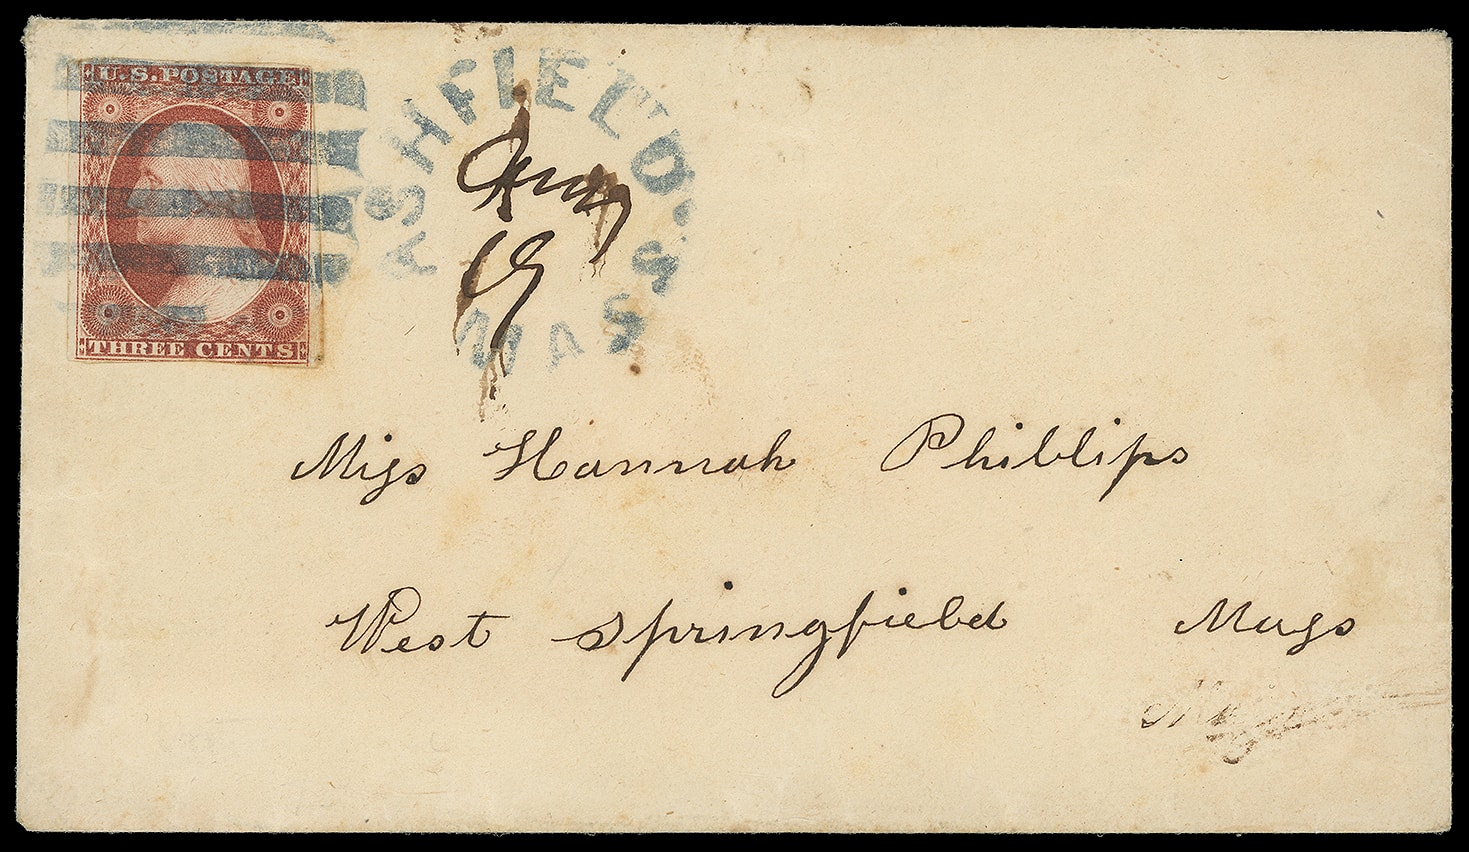 U.S. POSTAGE
THREE CENTS
ASHFIELD. MASS
19
Miſs Hannah Phillips
West Springfield Maſs